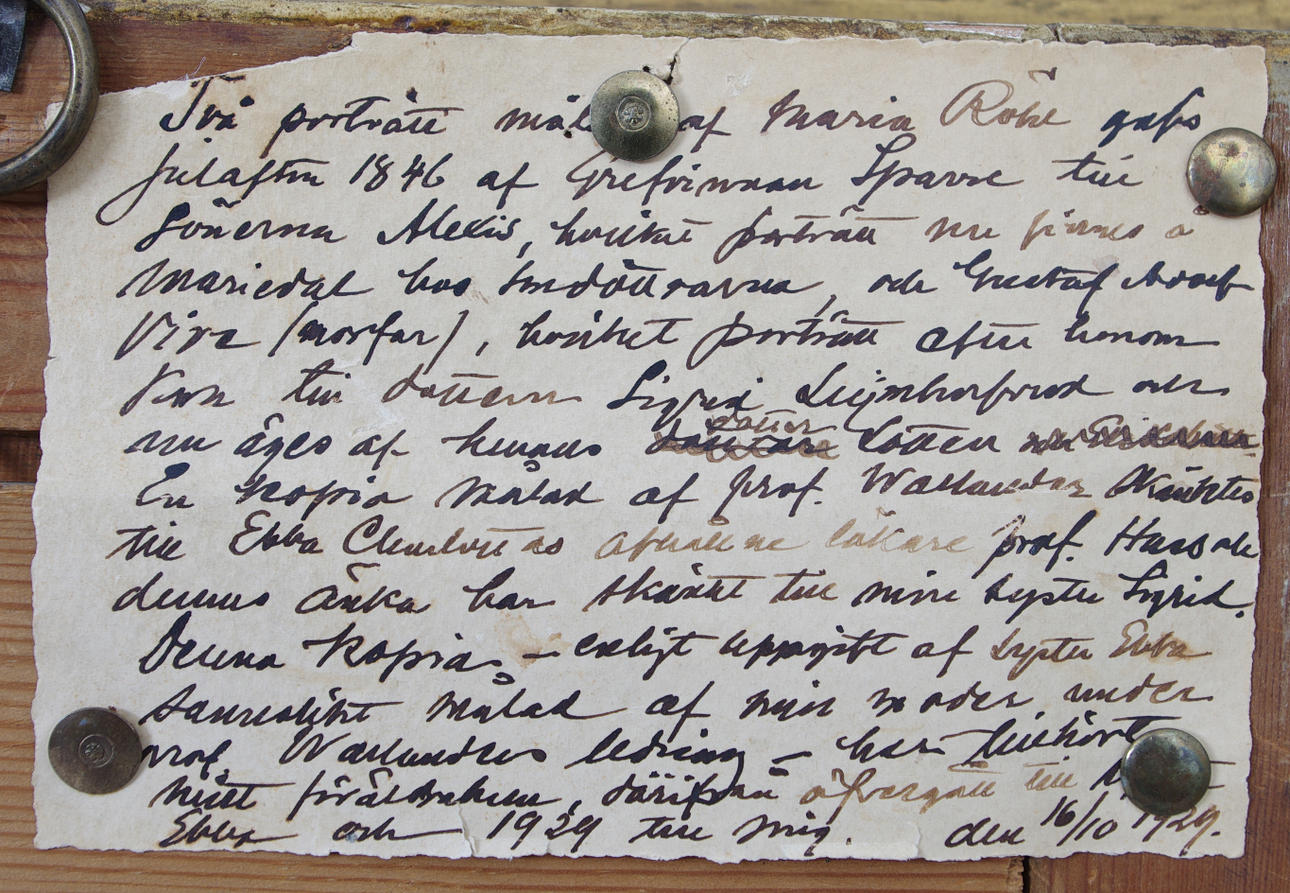 Två porträtt mål af Maria Röhl gafs
julafton 1846 af Grefvinnan Sparre till
sönerna Alexis, hvilket porträtt nu finnes å
Mariedal hos sondöttrarna, och Gustaf Adolf
Vive (morfar), hvilket porträtt efter honom
kom till dottern Sigrid Leijonhufvud och
nu äges af hennes dotter Lotten
En kopia målad af prof. Wallander skänktes
till Ebba Charlottas aflidne läkare prof. Huss och
dennes änka har skänkt till min syster Sigrid.
Denna kopia – enligt uppgift af syster Ebba
sannolikt målad af min moder under
prof. Wallanders ledning – har tillhört
mitt föräldrahem, därifrån öfvergått till
Ebba och 1929 till mig. den 16/10 1929.